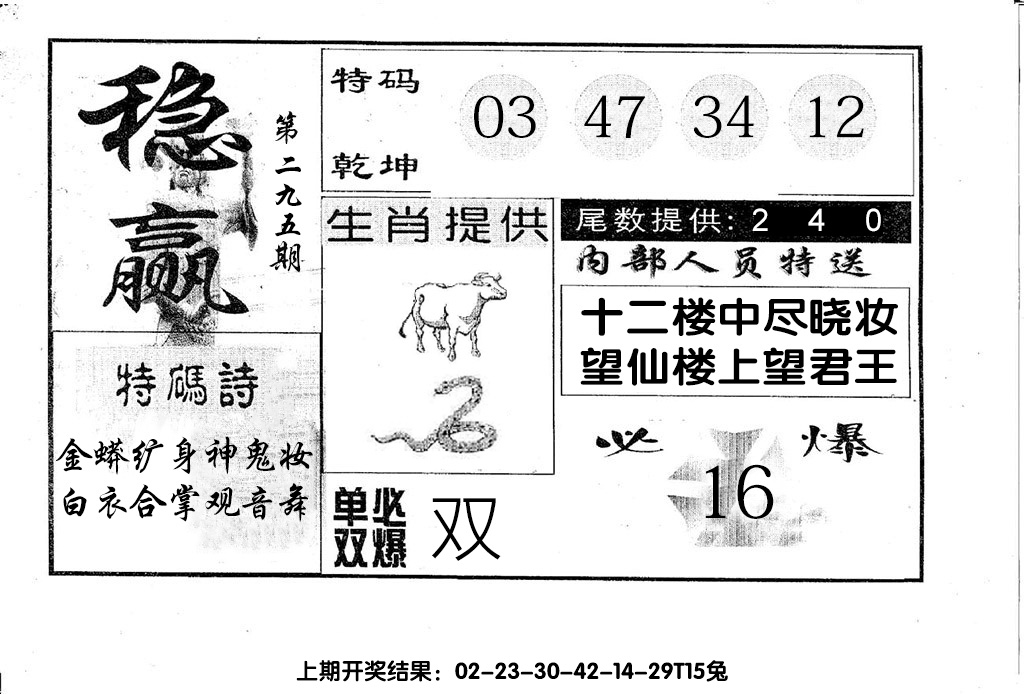 稳赢
第二九五期
特码诗
金蟒纩身神鬼妆
白衣合掌观音舞
特码
乾坤
03 47 34 12
生肖提供
单双必爆
双
尾数提供: 2 4 0
内部人员特送
十二楼中尽晓妆
望仙楼上望君王
必爆
16
上期开奖结果：02-23-30-42-14-29T15兔